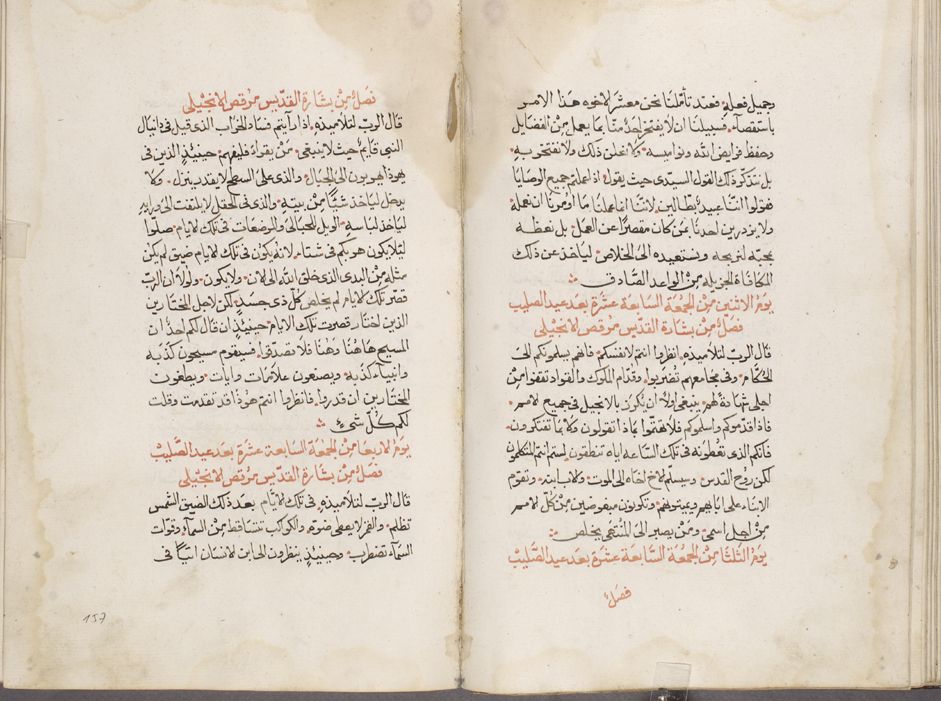 وجميل فعله فعند تأملنا نحن معشر الاخوه هذا الامر
باستقصآء فسبيلنا ان لا يفتخر احدٌ منا بما يعمل من الفضايل
وحفظ فرايض الله ونواميسه ولا نعلن ذلك ولا نفتخر به
بل نتذكر ذلك القول السيدى حيث يقول اذا عملتم جميع الوصايا
فقولوا اننا عبيد بطالين لاننا انما عملنا ما اومرنا ان نعمله
ولا يزدرين احدنا بمن كان مقصرًا عن العمل بل نعظه
بمحبه لنربحه ونستعيده الى الخلاص لياخذ عن ذلك
المكافاة الجزيله من الواعد الصادق
يوم الاثنين من الجمعة السابعة عشرة بعد عيد الصليب
فصلٌ من بشارة القديس مرقص الانجيلى
قال الرب لتلاميذه انظروا انتم لانفسكم فانهم يسلمونكم الى
الحكام وفى مجامعهم تضربوا وقدام الملوك والقواد تقفوا من
اجلى شهادة لهم ينبغى اولا ان يكرز بالانجيل فى جميع الامم
فاذا قدموكم واسلموكم فلا تهتموا بماذا تقولون ولا بما تفتكرون
فانكم الذى تعطونه فى تلك الساعه اياه تنطقون لستم انتم المتكلمون
لكن روح القدس وسيسلم الاخ اخاه الى الموت والاب ابنه وتقوم
الابناء على ابايهم ويميتونهم وتكونون مبغوضين من كل الامم
من اجل اسمى ومن يصبر الى المنتهى يخلص
يوم الثلثا من الجمعة السابعة عشرة بعد عيد الصليب
فصلٌ
فصلٌ من بشارة القديس مرقص الانجيلى
قال الرب لتلاميذه اذا رايتم فساد الخراب الذى قيل فى دانيال
النبى قايم حيث لا ينبغى من يقراء فليفهم حينيذٍ الذين فى
يهوذا يهربون الى الجبال والذى على السطح لا يقدر ينزل ولا
يدخل لياخذ شيًا من بيته والذى فى الحقل لا يلتفت الى ورايه
لياخذ لباسه الويل للحبالى والمرضعات فى تلك الايام صلوا
ليلا يكون هربكم فى شتاء لانه يكون فى تلك الايام ضيق لم يكن
مثله من البدى الذى خلق الله الى الان ولا يكون ولولا ان الرب
قصر تلك الايام لم يخلص كل ذى جسد لكن لاجل المختارين
الذين اختار قصرت تلك الايام حينيذٍ ان قال لكم احدٌ ان
المسيح هاهنا وهنا فلا تصدقوا فسيقوم مسيحون كذبه
وانبياء كذبه ويصنعون علامات وايات ويطغون
المختارين ان قدروا فانظروا انتم هوذا قد تقدمت وقلت
لكم كل شىء
يوم الاربعا من الجمعة السابعة عشرة بعد عيد الصليب
فصلٌ من بشارة القديس مرقص الانجيلى
قال الرب لتلاميذه فى تلك الايام بعد ذلك الضيق الشمس
تظلم والقمر لا يعطى ضوه والكواكب تتساقط من السمآء وقوات
السمآء تضطرب وحينيذٍ ينظرون الى ابن الانسان اتيًا فى
157